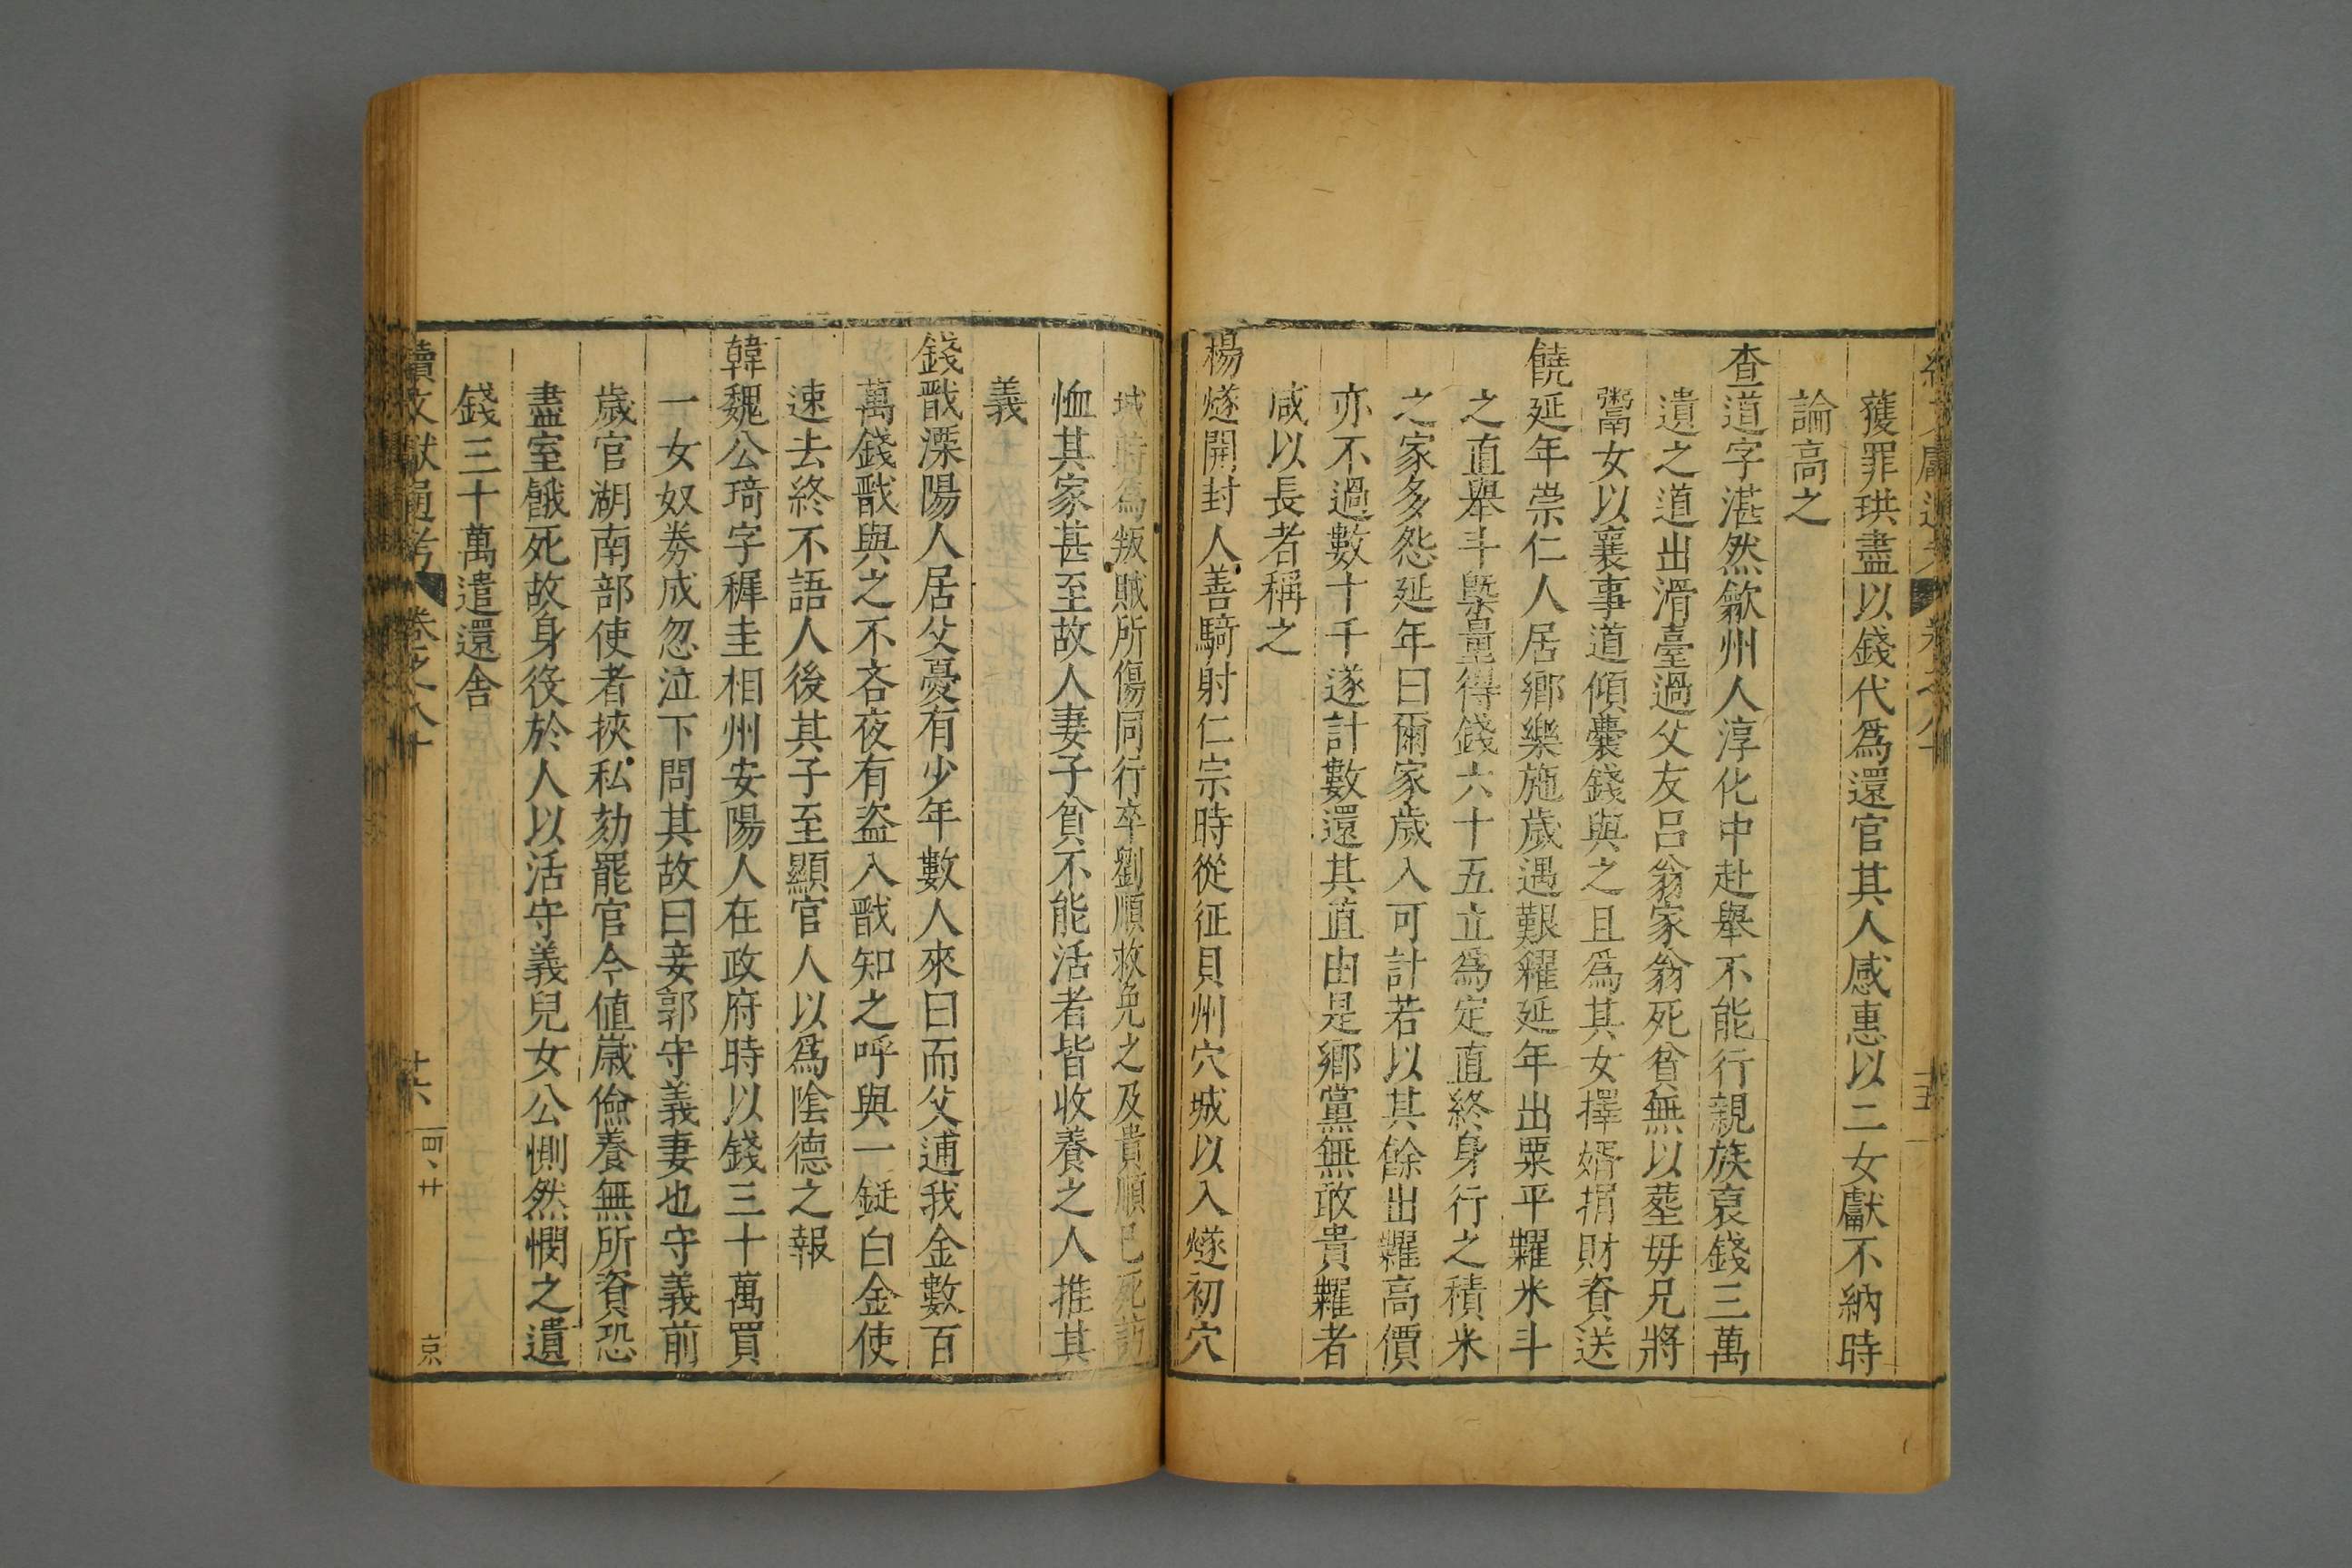 獲罪珙盡以錢代爲還官其人感惠以二女獻不納時
論高之
查道字湛然歙州人淳化中赴舉不能行親族裒錢三萬
遺之道出滑臺過父友呂翁家翁死貧無以塟母兄將
鬻女以襄事道傾囊錢與之且爲其女擇婿捐財資送
饒延年崇仁人居鄉樂施歲遇艱糴延年出粟平糶米斗
之直舉斗槩量得錢六十五立爲定直終身行之積米
之家多怨延年曰爾家歲入可計若以其餘出糶高價
亦不過數十千遂計數還其直由是鄉黨無敢貴糶者
咸以長者稱之
楊燧開封人善騎射仁宗時從征貝州穴城以入燧初穴
城時爲叛賊所傷同行卒劉順救免之及貴順已死訪
恤其家甚至故人妻子貧不能活者皆收養之人推其
義
錢戩溧陽人居父憂有少年數人來曰而父逋我金數百
萬錢戩與之不吝夜有盜入戩知之呼與一鋌白金使
速去終不語人後其子至顯官人以爲陰德之報
韓魏公琦字穉圭相州安陽人在政府時以錢三十萬買
一女奴劵成忽泣下問其故曰妾郭守義妻也守義前
歲官湖南部使者挾私劾罷官今値歲儉養無所資恐
盡室餓死故身役於人以活守義兒女公惻然憫之遺
錢三十萬遣還舍
續文獻通考 卷之八十 十六 京